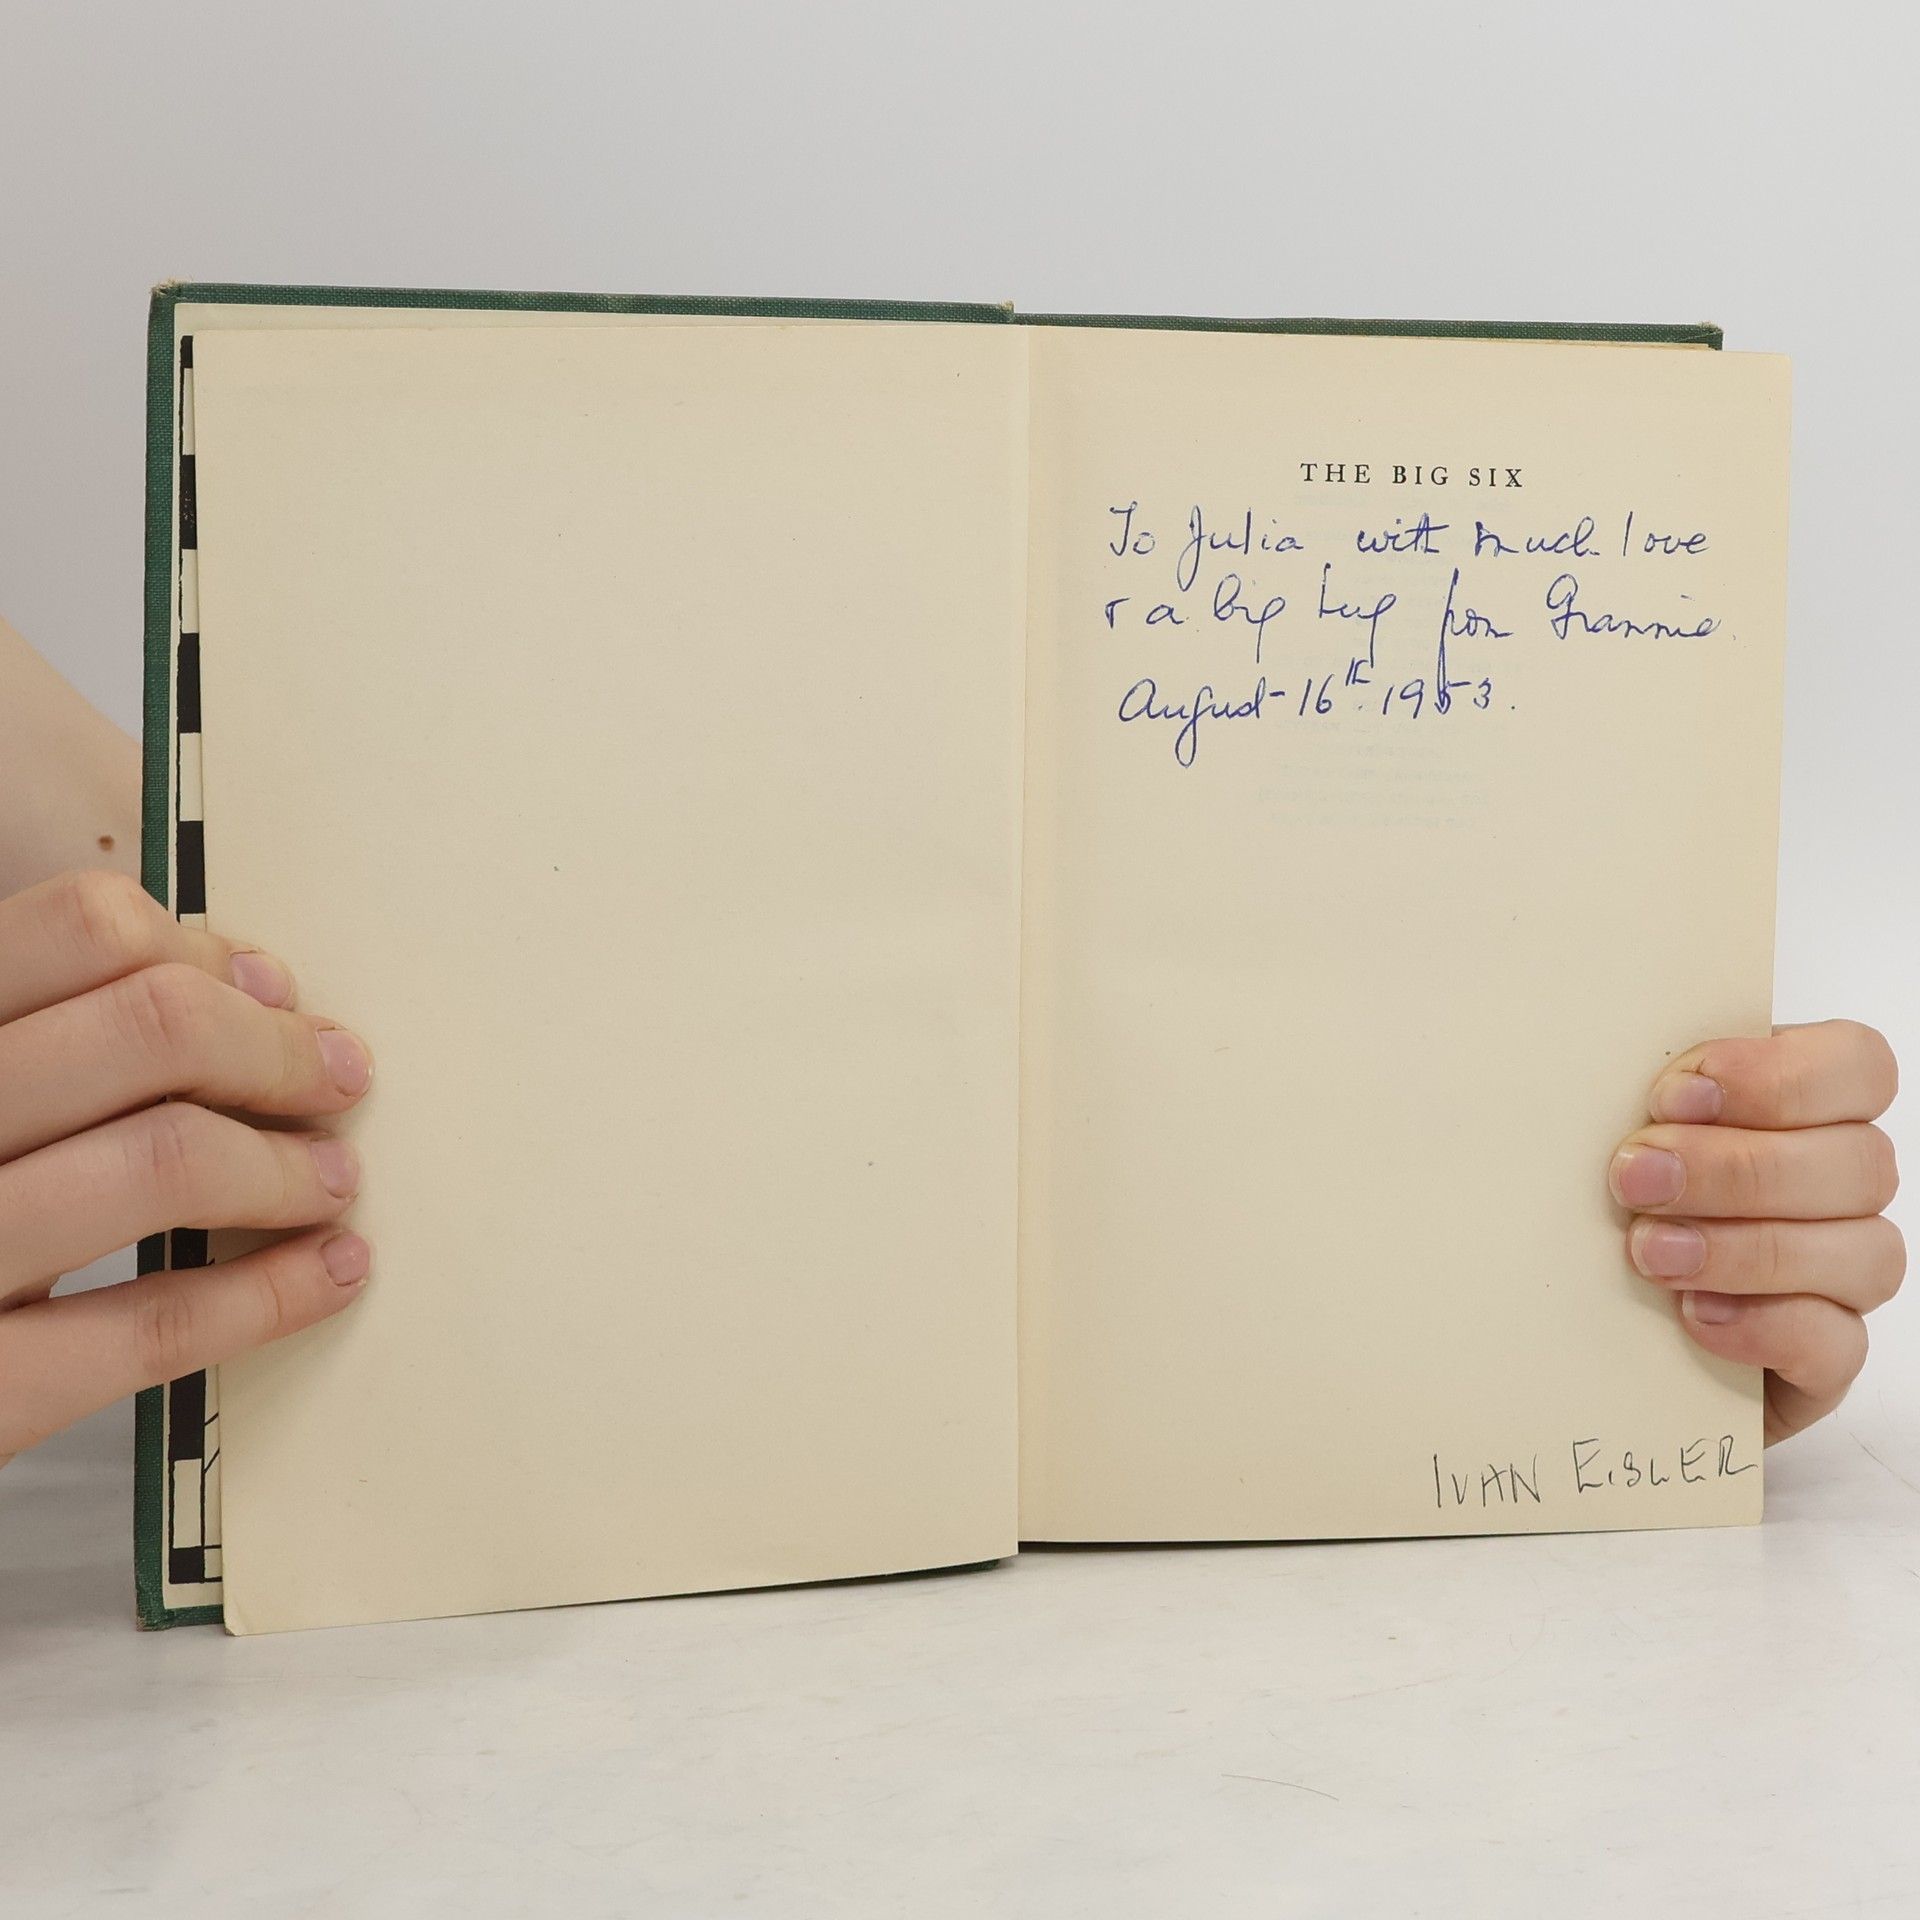 THE BIG SIX
To Julia with much love
& a big hug from Grannie.
August 16th. 1953.
IVAN EISLER